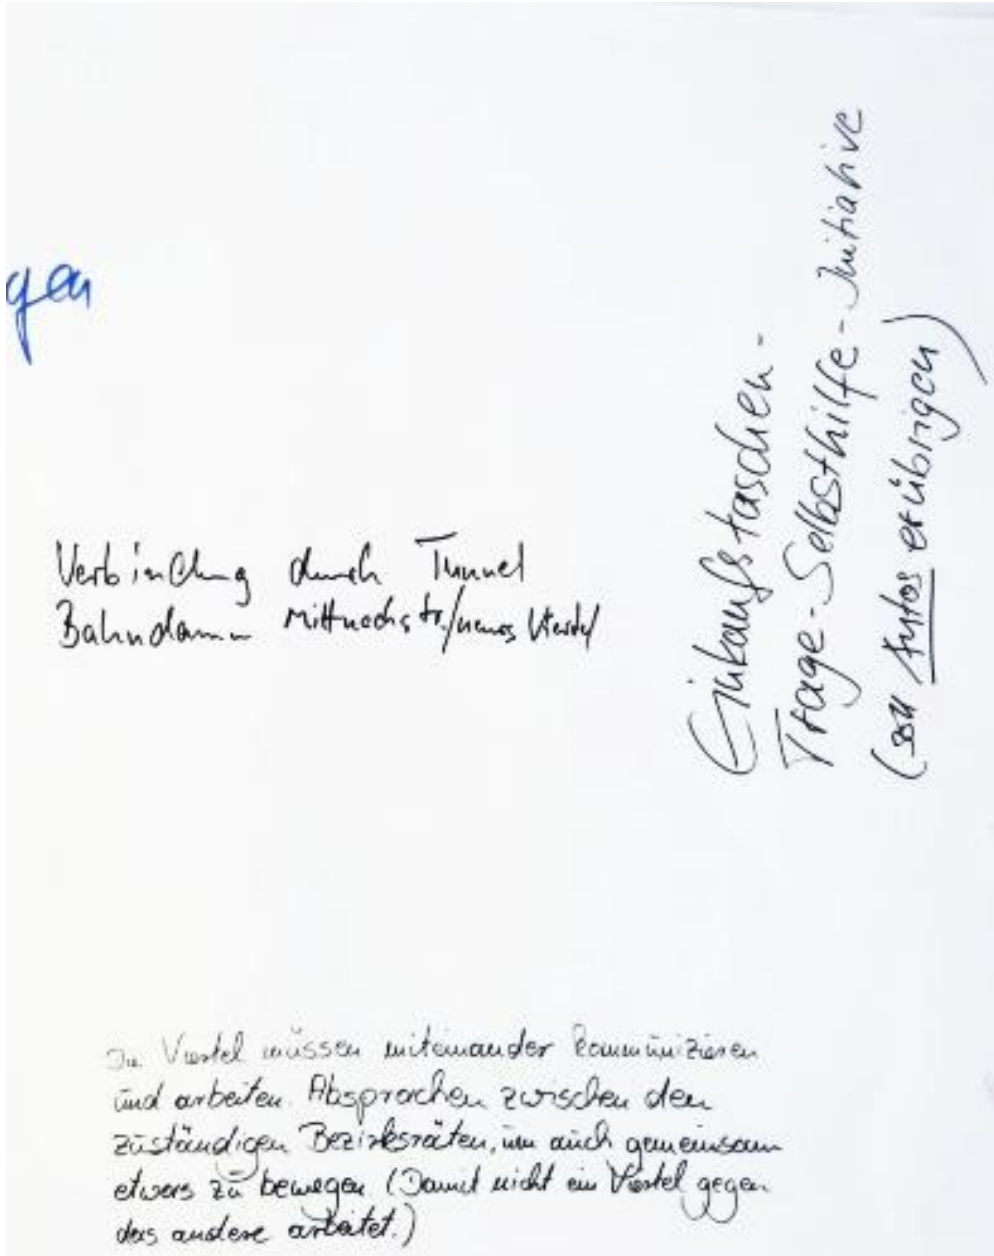 gen
Verbindung durch Tunnel
Bahndamm Mittwochstr/neues Viertel
Einkaufstaschen-
Trage-Selbsthilfe-Initiative
(soll Autos erübrigen)
Die Viertel müssen miteinander kommunizieren
und arbeiten. Absprachen zwischen den
zuständigen Bezirksräten, um auch gemeinsam
etwas zu bewegen (Damit nicht ein Viertel gegen
das andere arbeitet.)